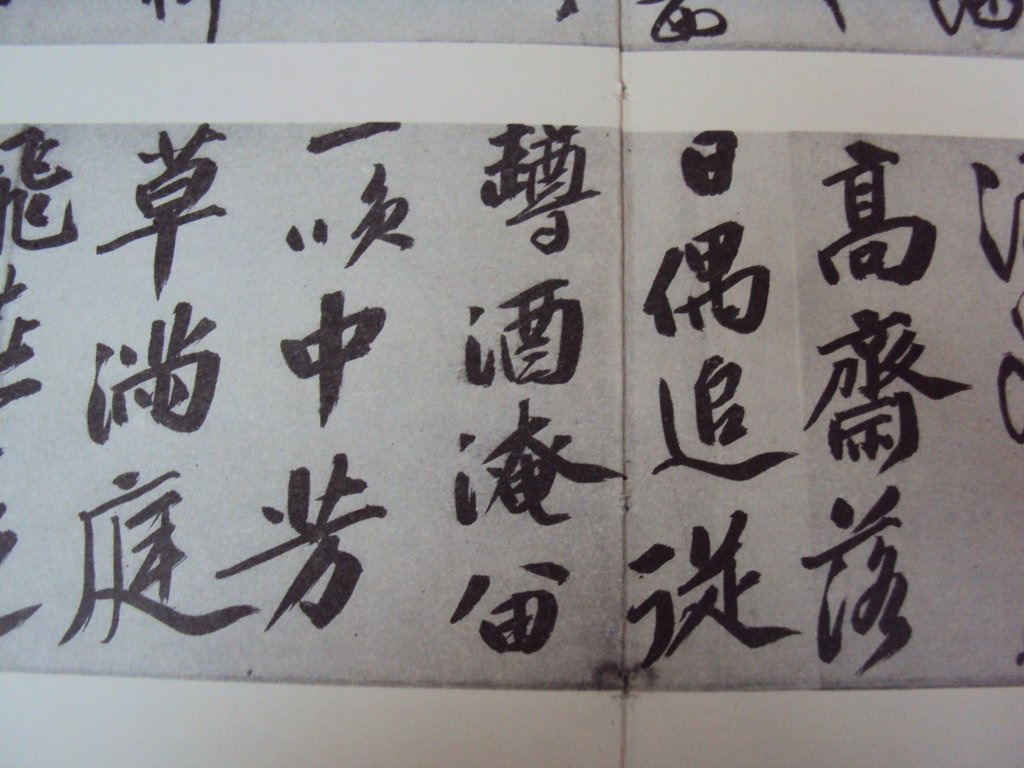 高齋落
日偶追從
罇酒淹留
一笑中芳
草滿庭
飛